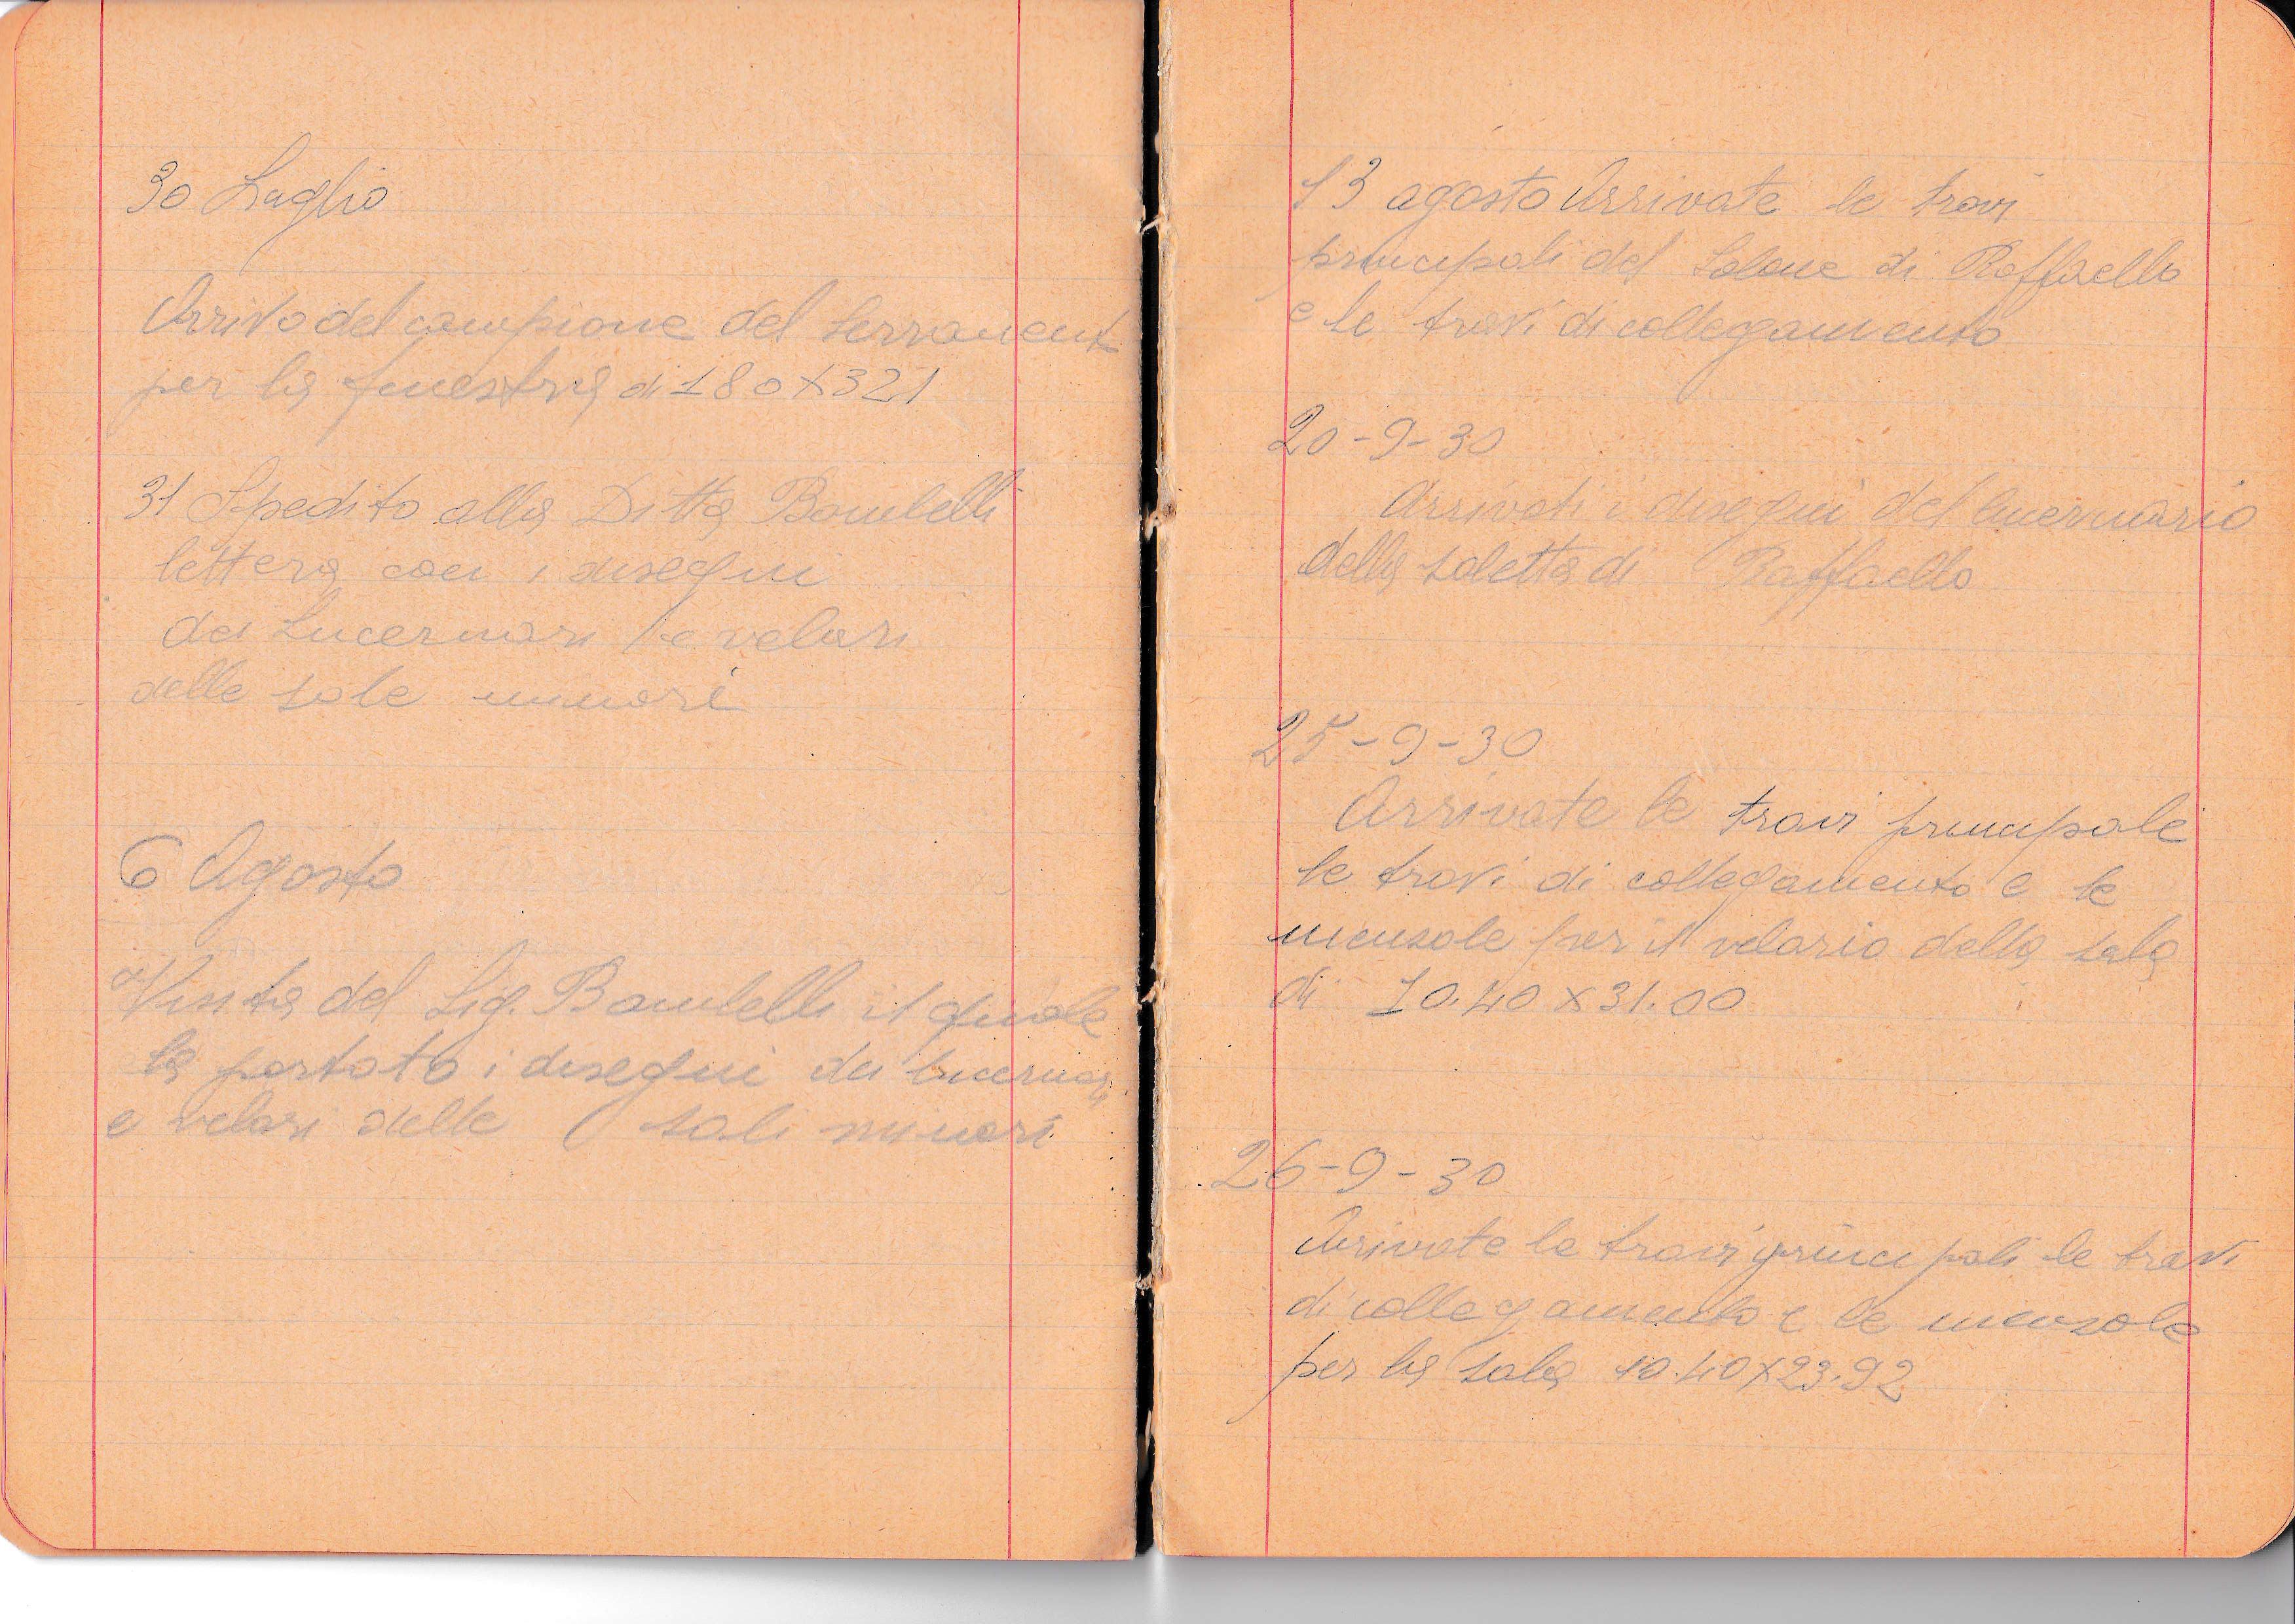 30 Luglio
Arrivo del campione del serrament
per la finestra di 180X321
31 Spedito alla Ditta Bombelli
lettera con i disegni
dei Lucernari e velari
delle sale minori
6 Agosto
Visita del Sig. Bombelli il quale
ha portato i disegni dei lucernari
e velari delle sali minori
13 agosto Arrivate le travi
principali del Salone di Raffaello
e le travi di collegamento
20-9-30
Arrivati i disegni del lucernario
della saletta di Raffaello
25-9-30
Arrivate le travi principale
le travi di collegamento e le
mensole per il velario della sala
di 10.40 x 31.00
26-9-30
Arrivate le travi principali le travi
di collegamento e le mensole
per la sala 10.40X23.92